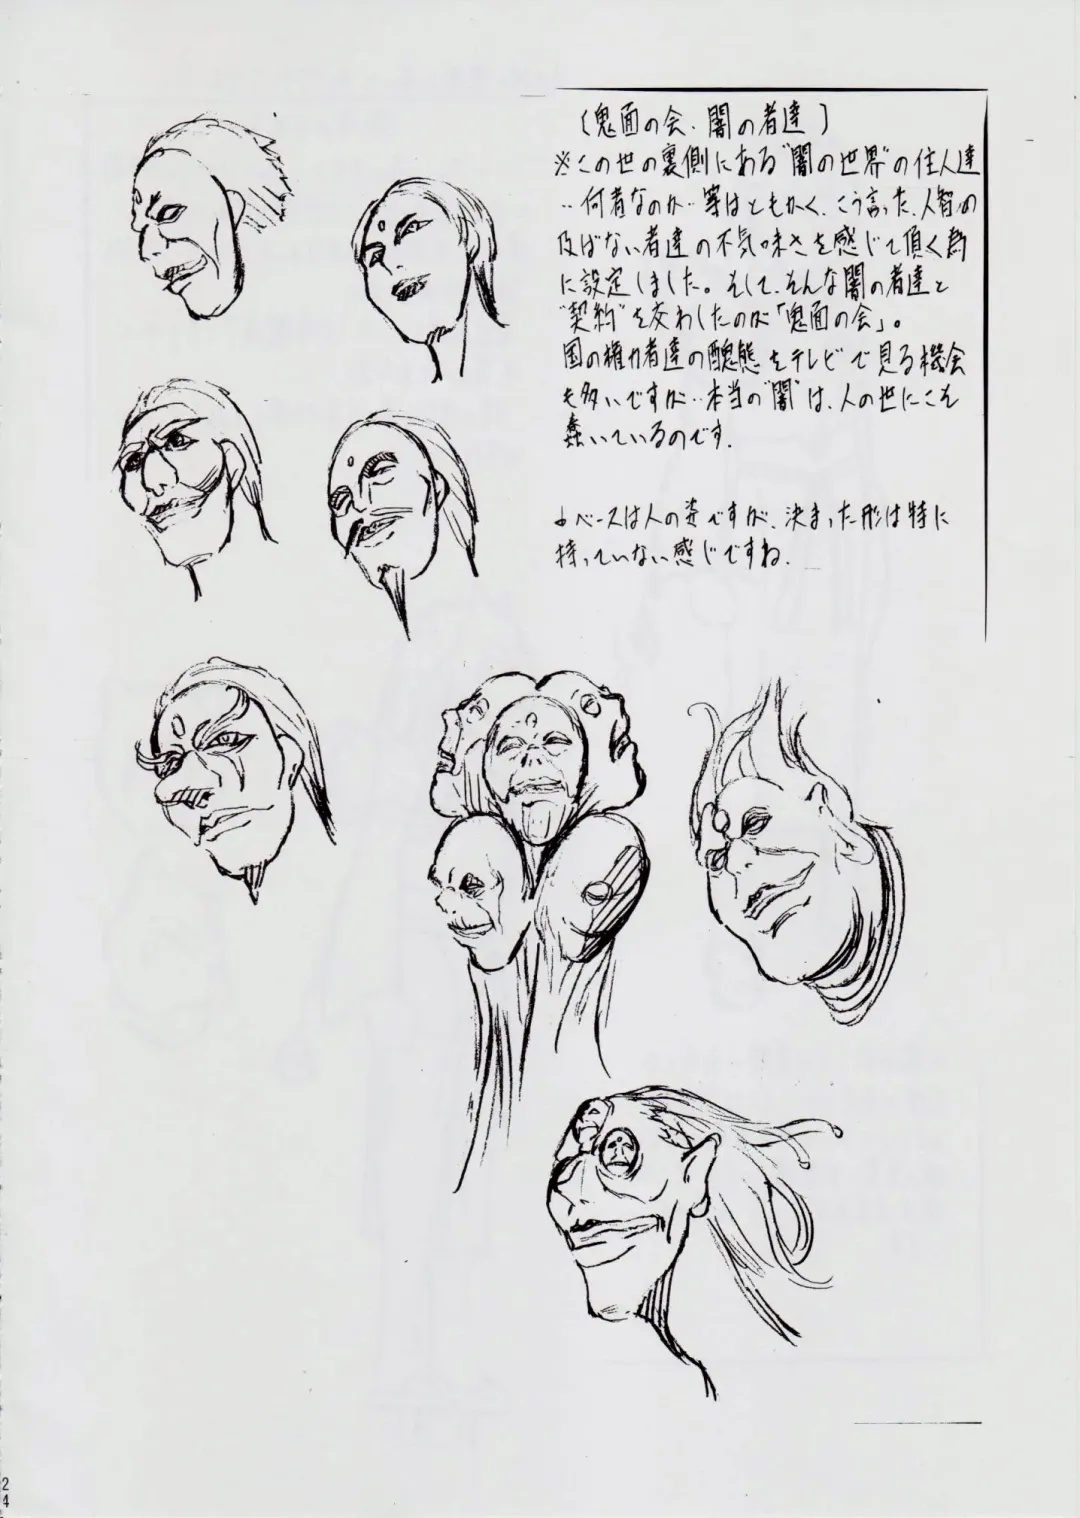 〔鬼面の会、闇の者達〕
※この世の裏側にある"闇の世界"の住人達
‥何者なのか‥等はともかく、こう言った、人智の
及ばない者達の不気味さを感じて頂く為
に設定しました。そして、そんな闇の者達と
"契約"を交わしたのが「鬼面の会」。
国の権力者達の醜態をテレビで見る機会
も多いですが‥本当の"闇"は、人の世にこそ
蠢いているのです.
↓ベースは人の姿ですが、決まった形は特に
持っていない感じですね.
24